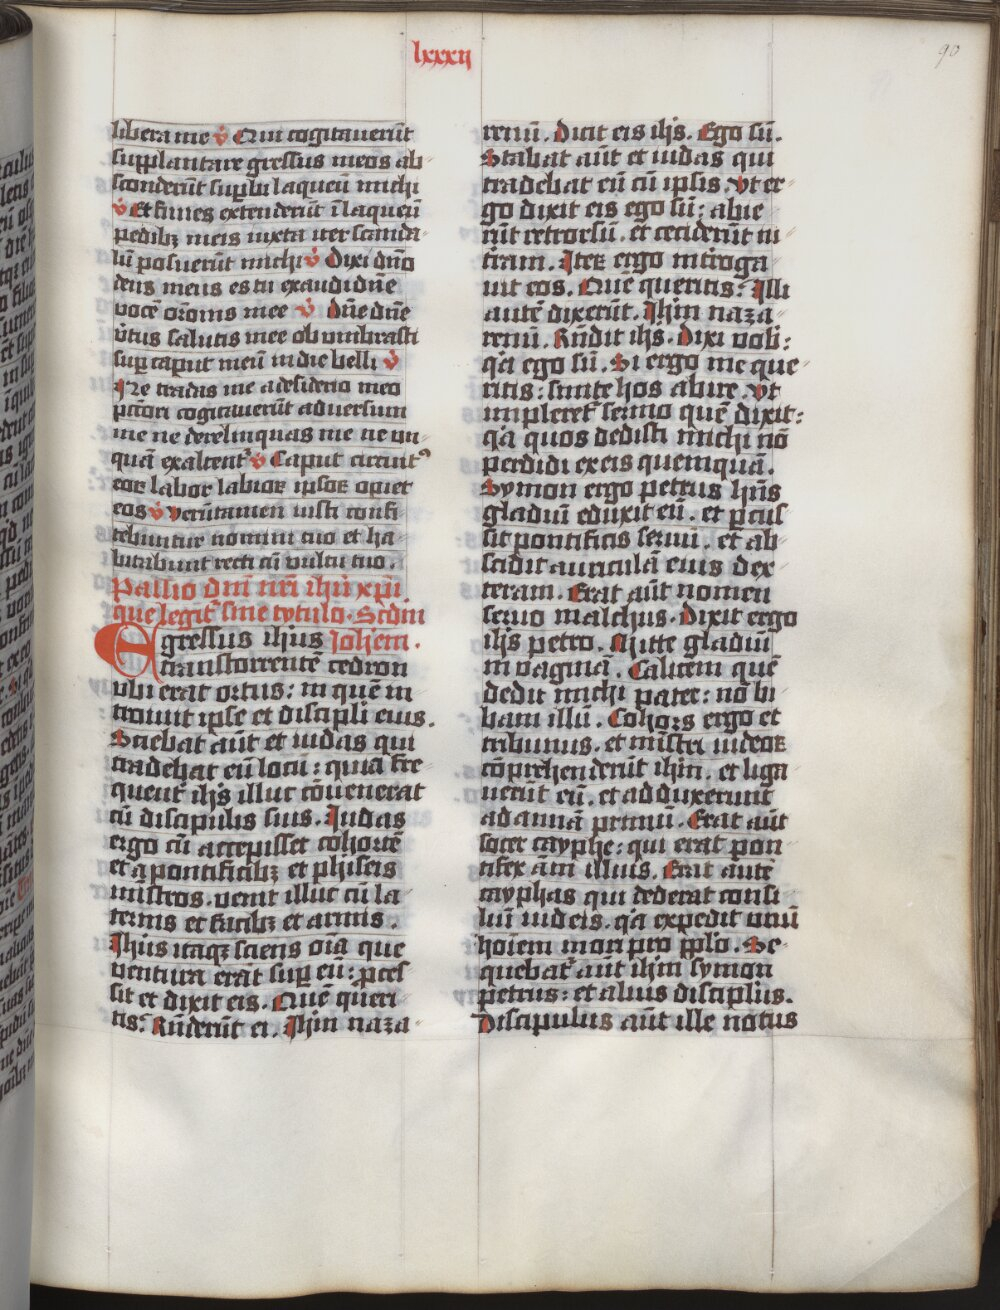 lxxxij
90
libera me v̇ Qui cogitauerūt
supplantare gressus meos ab
sconderūt sup̄bi laqueū michi
v̇ Et funes extenderūt ī laqueū
pedibꝫ meis iuxta iter scanda
lū posuerūt michi v̇ Dixi dn̄o
deus meus es tu exaudi dn̄e
vocē or̄onis mee v̇ Dn̄e dn̄e
v̄tus salutis mee obumbrasti
sup̄ caput meū in die belli v̇
Ne tradas me a desiderio meo
pc̄tori cogitauerūt aduersum
me ne derelinquas me ne un
quā exaltent᷑ v̇ Caput circuit᷒
eoꝝ labor labioꝝ ipsoꝝ opiet
eos v̇ verūtamen iusti confi
tebuntur nomini tuo et ha
bitabunt recti cū vultu tuo.
Passio dn̄i nr̄i ih̄u xp̄i
que legit᷑ sine tytulo. Scd̄m
Egressus ih̄us Joh̄em.
trans torrentē cedron
vbi erat ortus: in quē in
troiuit ipse et discipli eius.
Sciebat aūt et iudas qui
tradebat eū locū: quia fre
quent᷑ ih̄s illuc cōuenerat
cū discipulis suis. Iudas
ergo cū accepisset cohortē
et a pontificibꝫ et ph̄iseis
mīstros. venit illuc cū la
ternis et facibꝫ et armis.
Ih̄us itaqꝫ sciens oīa que
ventura erat sup̄ eū: p̄ces
sit et dixit eis. Quē queri
tis? Rn̄derūt ei. Ih̄m naza
renū. Dicit eis ih̄s. Ego sū.
Stabat aūt et iudas qui
tradebat eū cū ipsis. vt er
go dixit eis ego sū: abie
rūt retrorsū. et ceciderūt in
terram. Iteꝝ ergo int̄roga
uit eos. Quē queritis? Illi
autē dixerūt. Ih̄m naza
renū. Rn̄dit ih̄s. Dixi vob̄:
q̄a ego sū. Si ergo me que
ritis: sinite hos abire. vt
impleret᷑ sermo quē dixit:
q̄a quos dedisti michi nō
perdidi ex eis quemquā.
Symon ergo petrus hn̄s
gladiū eduxit eū. et p̄cus
sit pontificis seruū. et ab
scidit auriculā eius dex
teram. Erat aūt nomen
seruo malchus. Dixit ergo
ih̄s petro. Mitte gladiū
in vaginā. Calicem quē
dedit michi pater: nō bi
bam illū. Cohors ergo et
tribunus. et mīstri iudeoꝝ
cōprehenderūt ih̄m. et liga
uerūt eū. et adduxerunt
ad annā primū. Erat aūt
socer cayphe: qui erat pon
tifex āni illius. Erat autē
cayphas qui dederat consi
liū iudeis. q̄a expedit vnū
hoīem mori pro pp̄lo. Se
quebat᷑ aūt ih̄m symon
petrus: et alius discipl̄us.
Discipulus aūt ille notus